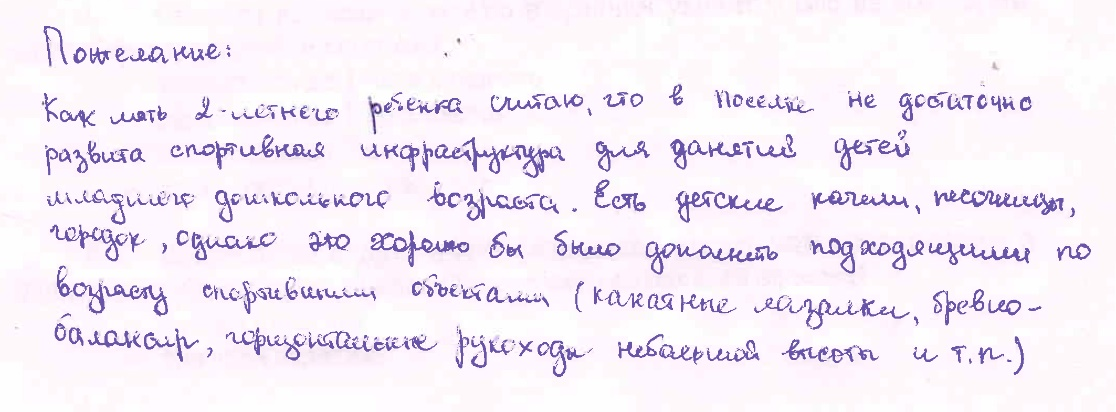 Пожелание:
Как мать 2-летнего ребенка считаю, что в поселке не достаточно
развита спортивная инфраструктура для данятий детей
младшего дошкольного возраста. Есть детские качели, песочницы,
городок, однако это хорошо бы было дополнить подходящими по
возрасту спортивными объектами (канатные лазалки, бревно-
балансир, горизонтальные рукоходы небольшой высоты и т.п.)